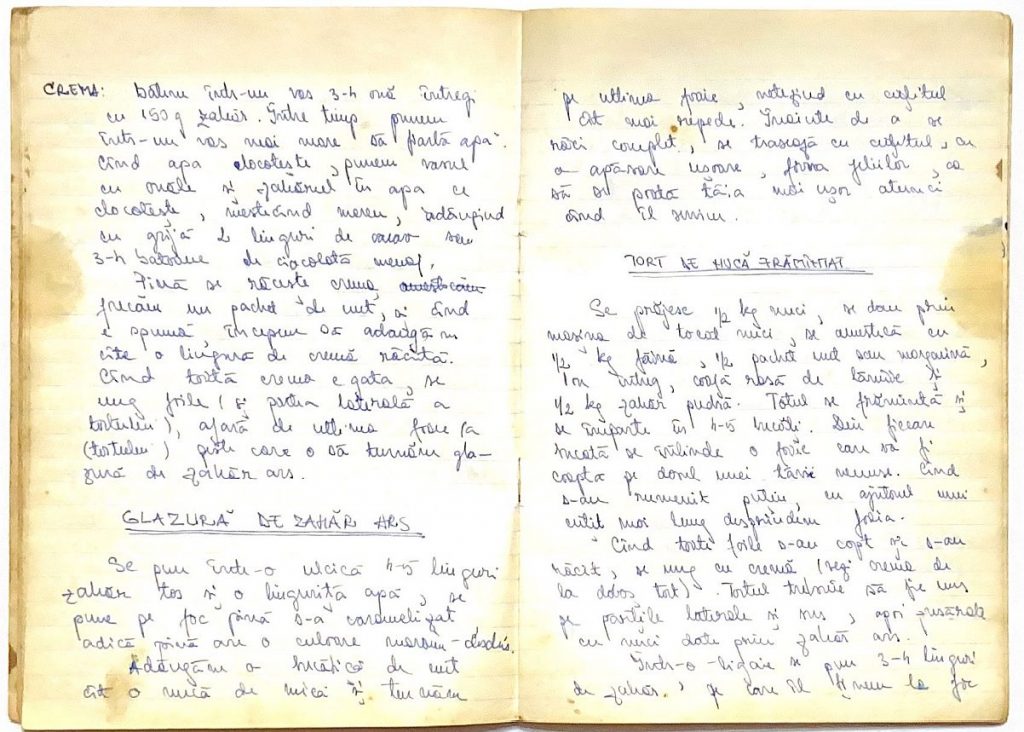 CREMA: batem într-un vas 3-4 ouă întregi
cu 150 g zahăr. Între timp punem
într-un vas mai mare să fiarbă apă.
Cînd apa clocotește, punem vasul
cu ouăle și zahărul în apa ce
clocotește, mestecînd mereu, adăugind
cu grijă 2 linguri de cacao sau
3-4 batoane de ciocolată menaj.
Pînă se răcește crema, amestecăm
frecăm un pachet de unt, și cînd
e spumă, începem să adăugăm
cîte o lingură de cremă răcită.
Cînd toată crema e gata, se
ung foile (și partea laterală a
tortului), afară de ultima foaie (a
tortului) peste care o să turnăm gla-
zură de zahăr ars.
GLAZURĂ DE ZAHĂR ARS
Se pun într-o ulcică 4-5 linguri
zahăr tos și o linguriță apă, se
pune pe foc pînă s-a caramelizat
adică pînă are o culoare maron-deschis.
Adăugăm o bucățică de unt
cît o nucă de mică și turnăm
pe ultima foaie, netezind cu cuțitul
cît mai repede. Înainte de a se
răci complet, se trasează cu cuțitul, cu
o apăsare ușoară, forma feliilor, ca
să se poată tăia mai ușor atunci
cînd îl servim.
TORT DE NUCĂ FRĂMÎNTAT
Se prăjesc 1/2 kg nuci, se dau prin
mașina de tocat nuci, se amestecă cu
1/2 kg făină, 1/2 pachet unt sau margarină,
1 ou întreg, coajă rasă de lămîie și
1/2 kg zahăr pudră. Totul se frămîntă și
se împarte în 4-5 bucăți. Din fiecare
bucată se întinde o foaie care să fi
coaptă pe dosul unei tăvi neunse. Cînd
s-au rumenit puțin, cu ajutorul unui
cuțit mai lung desprindem foaia.
Cînd toate foile s-au copt și s-au
răcit, se ung cu cremă (vezi crema de
la dobos tort). Tortul trebuie să fie uns
pe părțile laterale și sus, apoi presărate
cu nuci date prin zahăr ars.
Într-o tigaie se pun 3-4 linguri
de zahăr, pe care îl ținem la foc